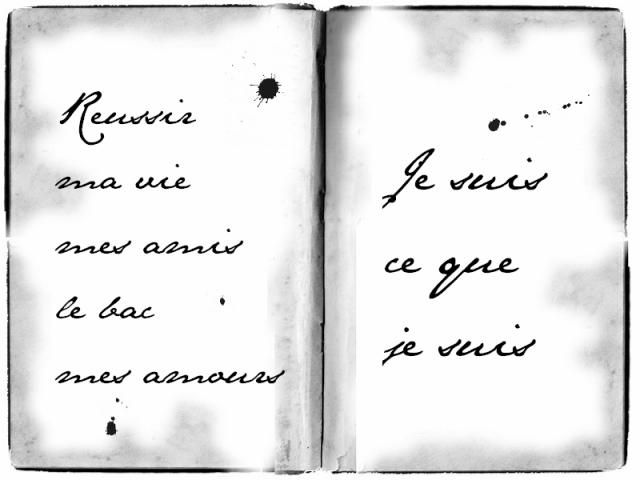 Reussir
ma vie
mes amis
le bac
mes amours
Je suis
ce que
je suis